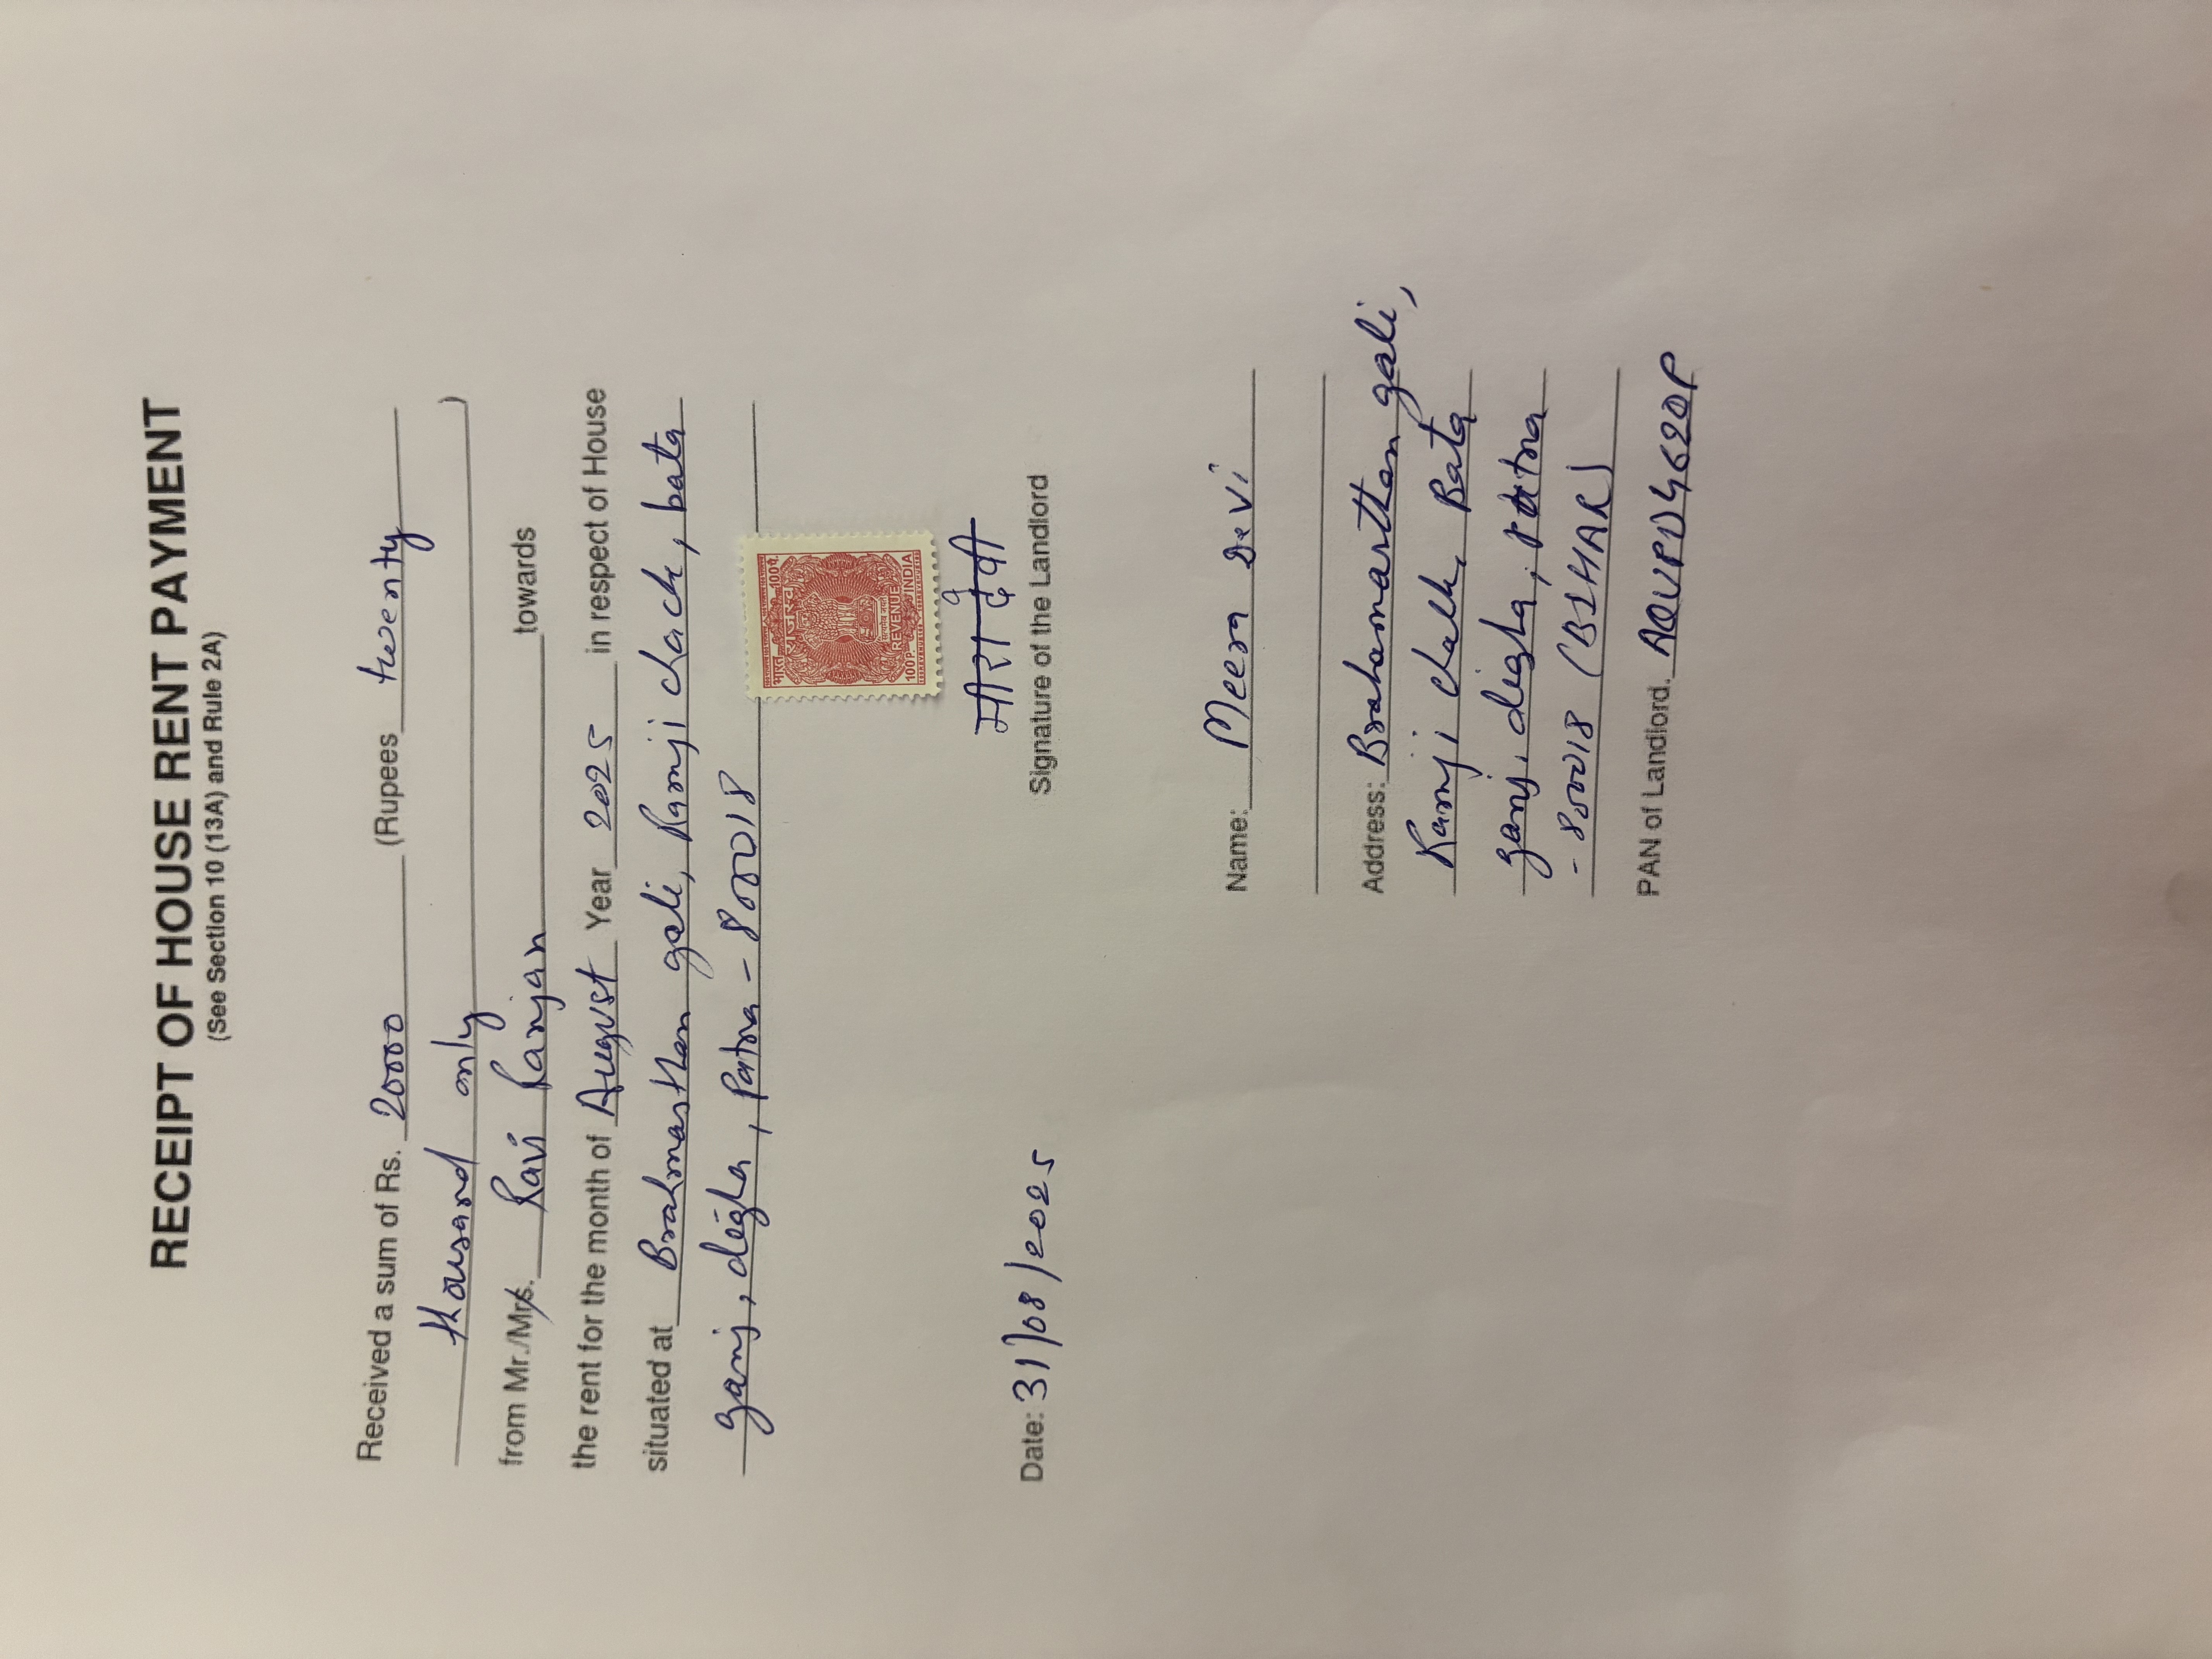 RECEIPT OF HOUSE RENT PAYMENT
(See Section 10 (13A) and Rule 2A)
Received a sum of Rs. 20000 (Rupees twenty
thousand only )
from Mr./Mrs. Ravi Ranjan towards
the rent for the month of August Year 2025 in respect of House
situated at Brahmasthan gali, Ramji chack, bata
ganj, digha, Patna - 800018
भारत 100 पै.
राजस्व
सत्यमेव जयते
100 P. REVENUE INDIA
मीरा देवी
Date: 31/08/2025 Signature of the Landlord
Name: Meera Devi
Address: Brahamasthan gali,
Ramji chakk, Bata
ganj, digha, Patna
- 800018 (BIHAR)
PAN of Landlord. AQUPD4620P